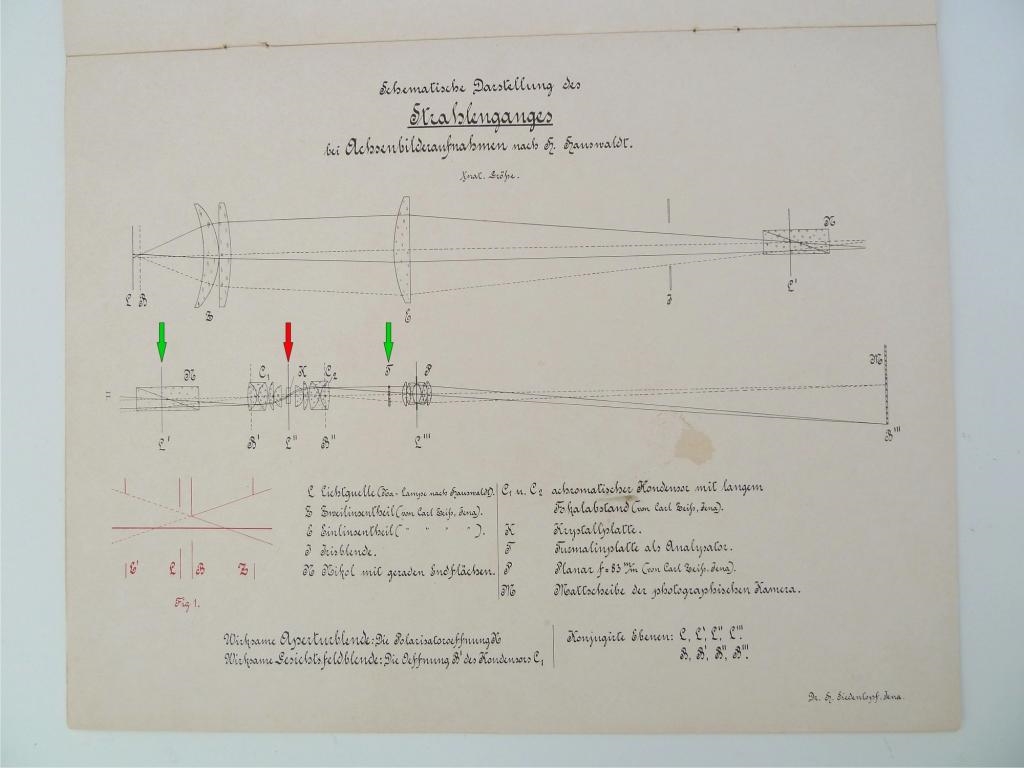 Schematische Darstellung des
Strahlenganges
bei Achsenbilderaufnahmen nach H. Hauswaldt.
L B
Z
E
J
N
L'
N
C₁
K
C₂
T
P
M
L'
B'
L''
B''
L'''
B'''
L Lichtquelle
Z Zweilinsentheil (von Carl Zeiß, Jena).
E Einlinsentheil ( " " " " ).
J Irisblende.
N Nikol mit geraden Endflächen.
C₁ u. C₂ achromatischer Kondensor mit langem
Fokalabstand (von Carl Zeiß, Jena).
K Krystallplatte.
T Turmalinplatte als Analysator.
P Planar f = 83 m/m (von Carl Zeiß, Jena).
M Mattscheibe der photographischen Kamera.
L B
Fig 1.
Wirksame Aperturblende: Die Polarisatoroeffnung N
Wirksame Gesichtsfeldblende: Die Oeffnung B' des Kondensors C₁
Konjugirte Ebenen: L, L', L'', L'''.
B, B', B'', B'''.
Dr. H. Siedentopf, Jena.